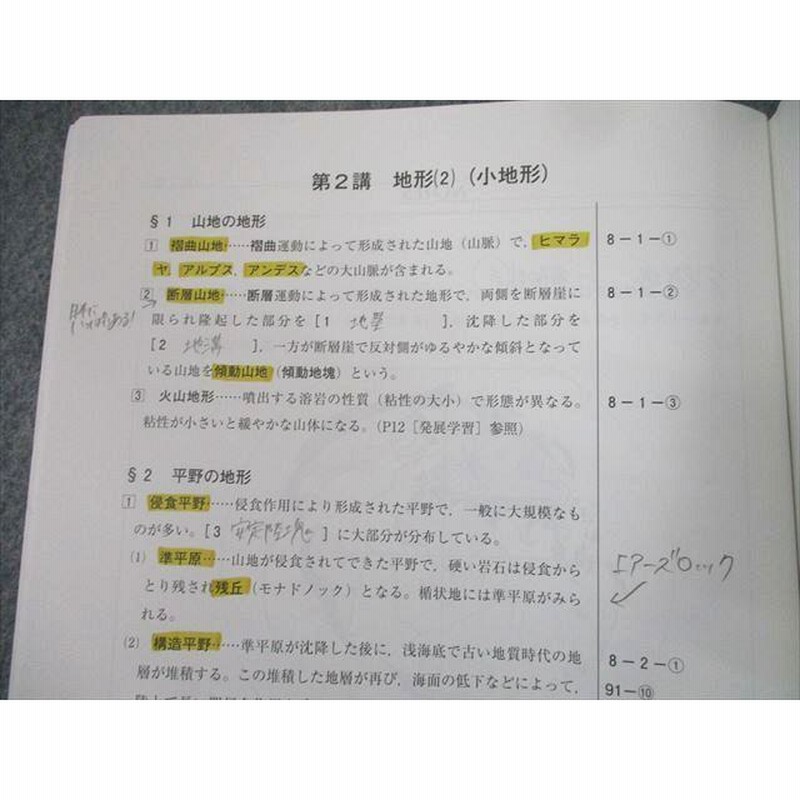 第2講 地形(2)(小地形)
§1 山地の地形
1 褶曲山地……褶曲運動によって形成された山地(山脈)で,ヒマラ
ヤ,アルプス,アンデスなどの大山脈が含まれる。
8-1-①
2 断層山地……断層運動によって形成された地形で,両側を断層崖に
8-1-②
限られ隆起した部分を[1 地塁 ],沈降した部分を
[2 地溝 ],一方が断層崖で反対側がゆるやかな傾斜となって
いる山地を傾動山地(傾動地塊)という。
3 火山地形……噴出する溶岩の性質(粘性の大小)で形態が異なる。
8-1-③
粘性が小さいと緩やかな山体になる。(P12[発展学習]参照)
§2 平野の地形
1 侵食平野……侵食作用により形成された平野で,一般に大規模なも
のが多い。[3 安定陸塊 ]に大部分が分布している。
(1) 準平原……山地が侵食されてできた平野で,硬い岩石は侵食から
エアーズロック
とり残され残丘(モナドノック)となる。楯状地には準平原がみら
れる。
(2) 構造平野……準平原が沈降した後に,浅海底で古い地質時代の地
8-2-①
層が堆積する。この堆積した地層が再び,海面の低下などによって,
91-⑩